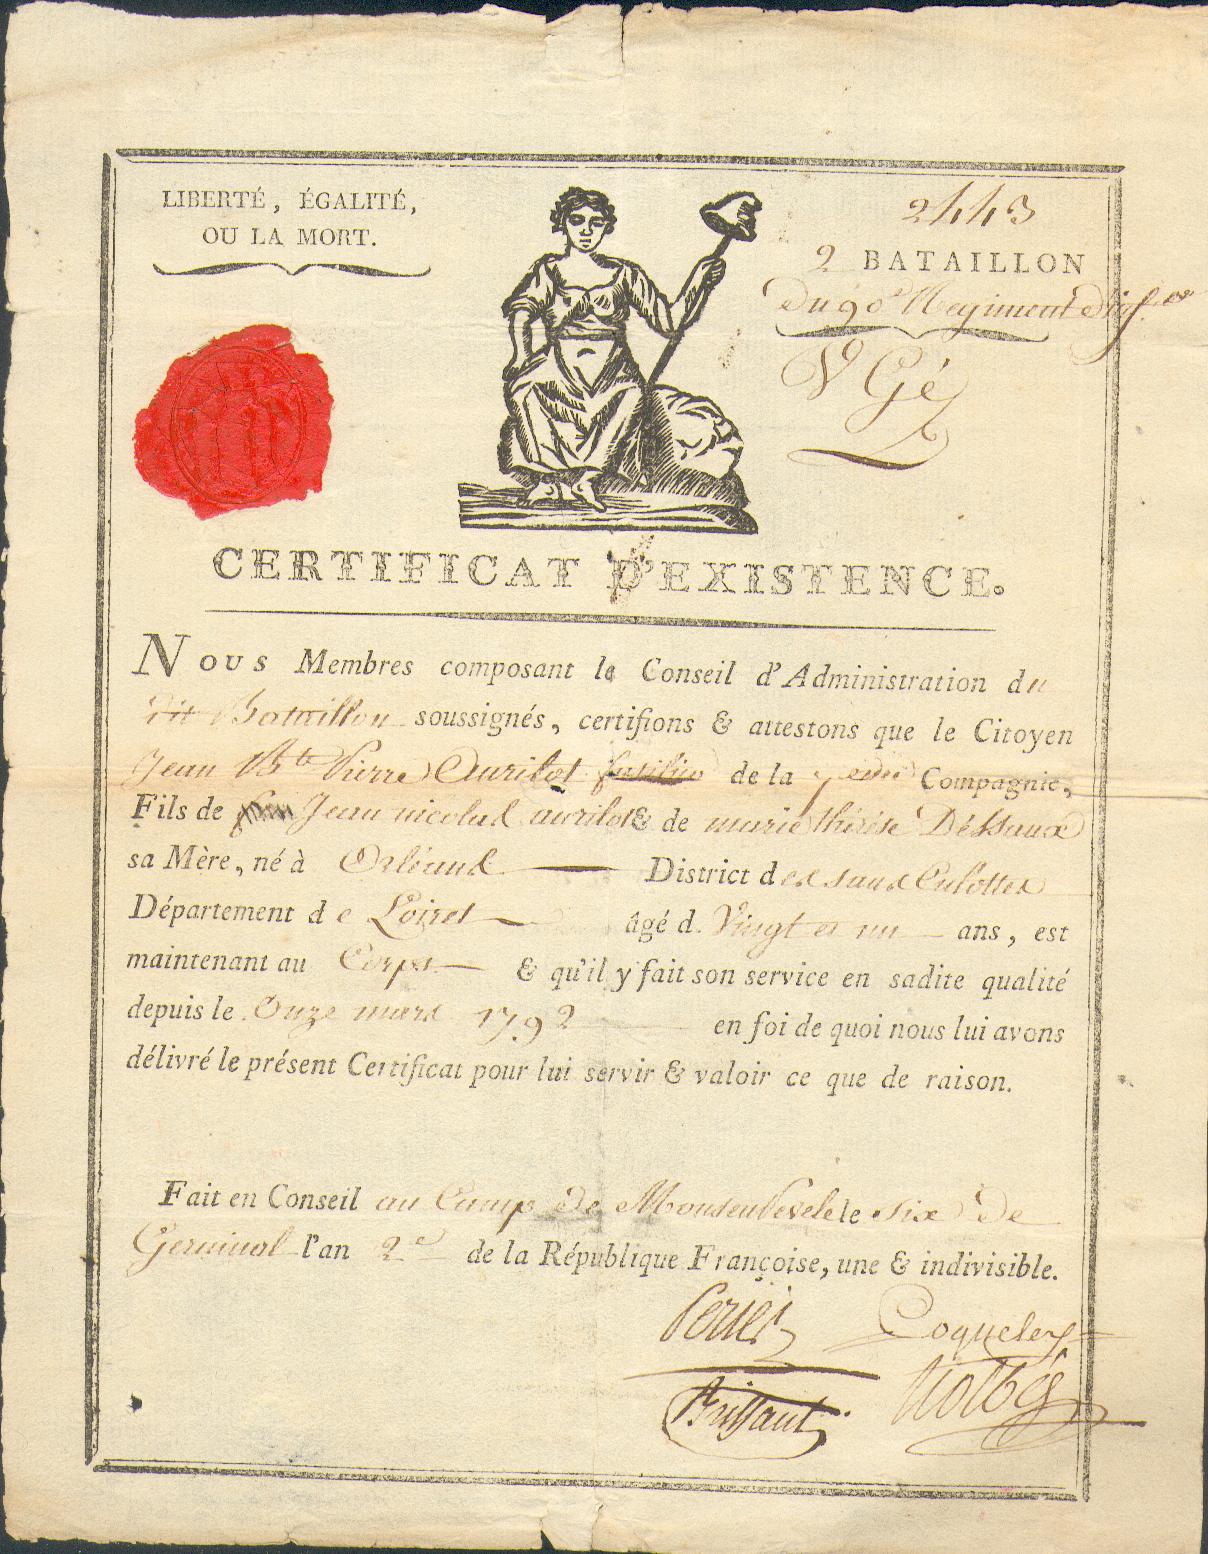 LIBERTÉ, ÉGALITÉ,
OU LA MORT.
2443
2 BATAILLON
Du 90e Regiment d'inf.rie
V Gé
CERTIFICAT D'EXISTENCE.
NOUS Membres composant le Conseil d'Administration du
dit Bataillon soussignés, certifions & attestons que le Citoyen
Jean Bte Pierre Aurilot fusilier de la Compagnie,
Fils de Jean nicolas aurilot & de marie thérése Déssaux
sa Mère, né à Orléans District des sans Culottes
Département de Loiret âgé d. Vingt et un ans, est
maintenant au Corps & qu'il y fait son service en sadite qualité
depuis le Onze mars 1792 en foi de quoi nous lui avons
délivré le présent Certificat pour lui servir & valoir ce que de raison.
Fait en Conseil au Camp de le six de
Germinal l'an 2e de la République Françoise, une & indivisible.
Perier Coqueley
Brissaut